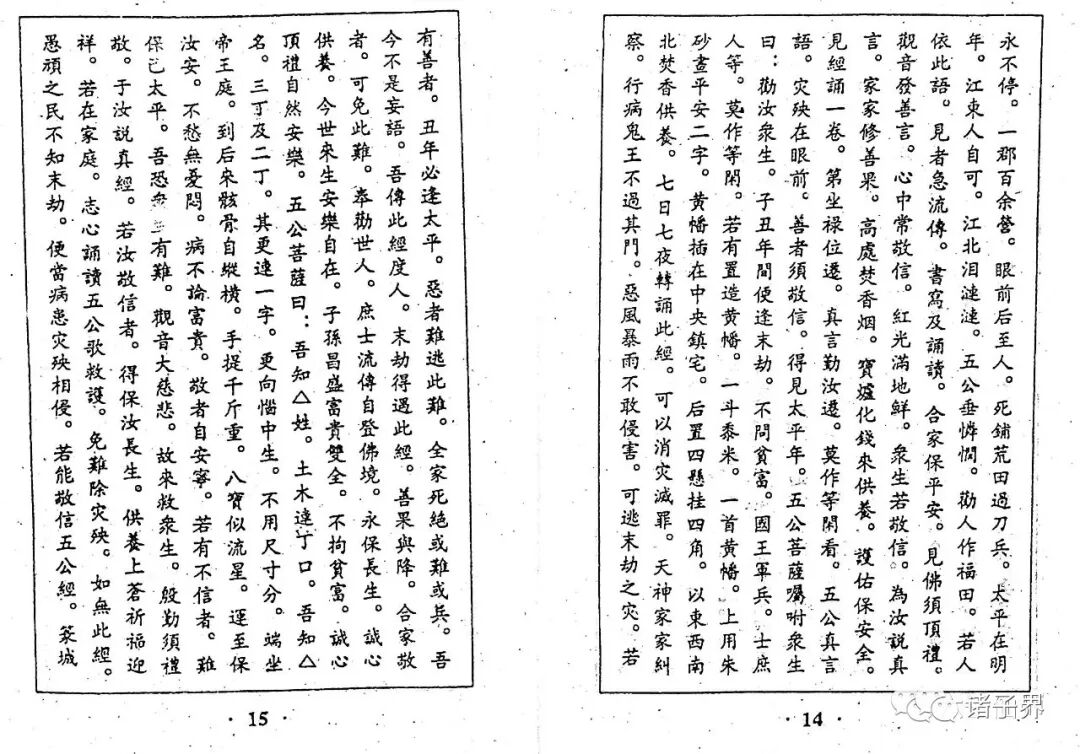 永不停。一郡百余營。眼前后至人。死鋪荒田過刀兵。太平在明
年。江東人自可。江北泪漣漣。五公垂憐憫。勸人作福田。若人
依此語。見者急流傳。書寫及誦讀。合家保平安。見佛須頂禮。
觀音發善言。心中常敬信。紅光滿地鮮。衆生若敬信。為汝説真
言。家家修善果。高處焚香烟。寶爐化錢來供養。護佑保安全。
見經誦一卷。第坐禄位遷。真言勤汝遷。莫作等閑看。五公真言
語。灾殃在眼前。善者須敬信。得見太平年。五公菩薩囑咐衆生
曰：勸汝衆生。子丑年間便逢末劫。不問貧富。國王軍兵。士庶
人等。莫作等閑。若有置造黄幡。一斗黍米。一首黄幡。上用朱
砂畫平安二字。黄幡插在中央鎮宅。后置四懸挂四角。以東西南
北焚香供養。七日七夜轉誦此經。可以消灾滅罪。天神家家糾
察。行病鬼王不過其門。惡風暴雨不敢侵害。可逃末劫之灾。若
· 14 ·
有善者。丑年必逢太平。惡者難逃此難。全家死絶或難或兵。吾
今不是妄語。吾傳此經度人。末劫得遇此經。善果與降。合家敬
者。可免此難。奉勸世人。庶士流傳自登佛境。永保長生。誠心
供養。今世來生安樂自在。子孫昌盛富貴雙全。不拘貧富。誠心
頂禮自然安樂。五公菩薩曰：吾知△姓。土木達丁口。吾知△
名。三丁及二丁。其更連一字。更向惱中生。不用尺寸分。端坐
帝王庭。到后來骸骨自縱横。手提千斤重。八寶似流星。運至保
汝安。不愁無憂悶。病不論富貴。敬者自安寧。若有不信者。難
保已太平。吾恐衆生有難。觀音大慈悲。故來救衆生。殷勤須禮
敬。于汝説真經。若汝敬信者。得保汝長生。供養上蒼祈福迎
祥。若在家庭。志心誦讀五公歌救護。免難除灾殃。如無此經。
愚頑之民不知末劫。便當病患灾殃相侵。若能敬信五公經。箓城
· 15 ·
诸子界